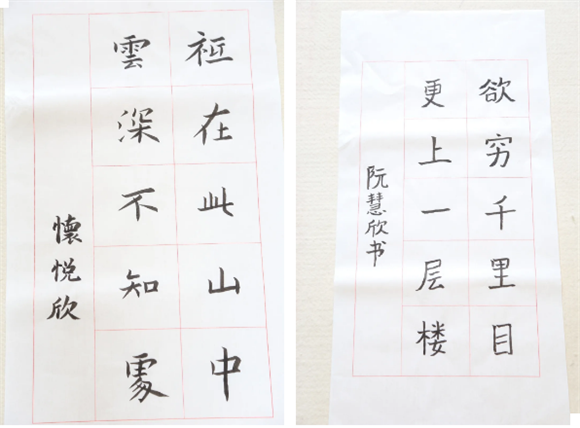 祗在此山中
雲深不知處
懷悦欣
欲穷千里目
更上一层楼
阮慧欣书